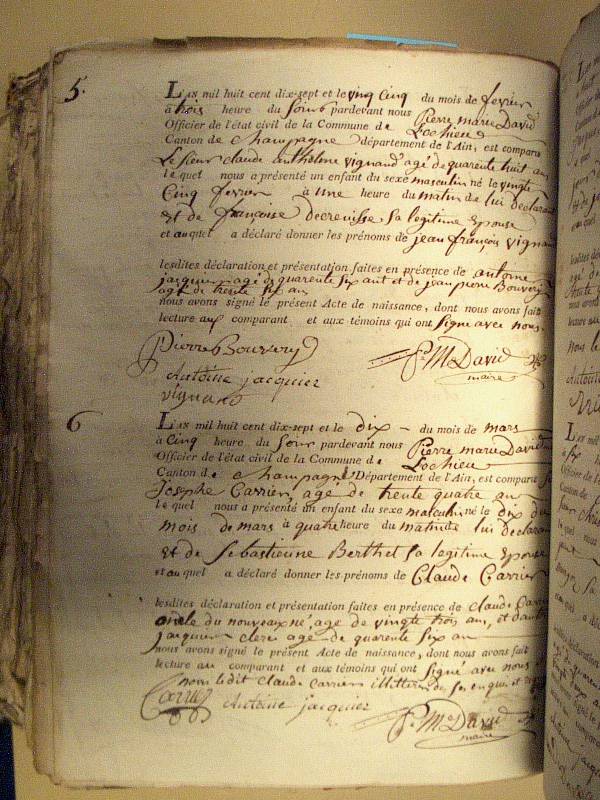 5.
L'an mil huit cent dix-sept et le vingt cinq du mois de fevrier
à trois heure du soir pardevant nous Pierre marie David
Officier de l'état civil de la Commune de Lochieu
Canton de champagne département de l'Ain, est comparu
Le sieur claude anthelme vignand agé de quarente huit an
lequel nous a présenté un enfant du sexe masculin né le vingt
Cinq fevrier à une heure du matin de lui déclarant
et de françoise Decrenisse sa legitime Epouse
et auquel a déclaré donner les prénoms de jean françois vignand
lesdites déclaration et présentation faites en présence de antoine
jacquier agé de quarente six ant et de jean pierre Bouvery
agé de trente six an
nous avons signé le présent Acte de naissance, dont nous avons fait
lecture aux comparant et aux témoins qui ont signe avec nous.
Pierre Bouvery
P.re M.ie David
maire
Antoine jacquier
vignand
6
L'an mil huit cent dix-sept et le dix du mois de mars
à cinq heure du soir pardevant nous Pierre marie David
Officier de l'état civil de la Commune de Lochieu
Canton de champagne Département de l'Ain, est comparu
Josephe Carrier, agé de trente quatre an
lequel nous a présenté un enfant du sexe masculin né le dix du
mois de mars à quatre heure du matin de lui Déclarant
et de Sebastienne Berthet sa legitime Epouse
et auquel a déclaré donner les prénoms de Claude Carrier
lesdites déclaration et présentation faites en présence de claude Carrier
oncle du nouveaux né, age de vingte trois an, et d'antoine
jacquier clerc agé de quarente six an
nous avons signé le présent Acte de naissance, dont nous avons fait
lecture au comparant et aux témoins qui ont signé avec nous
non ledit claude Carrier illetteré de ses enquit et
Carrier
Antoine jacquier
P.re M.ie David
maire